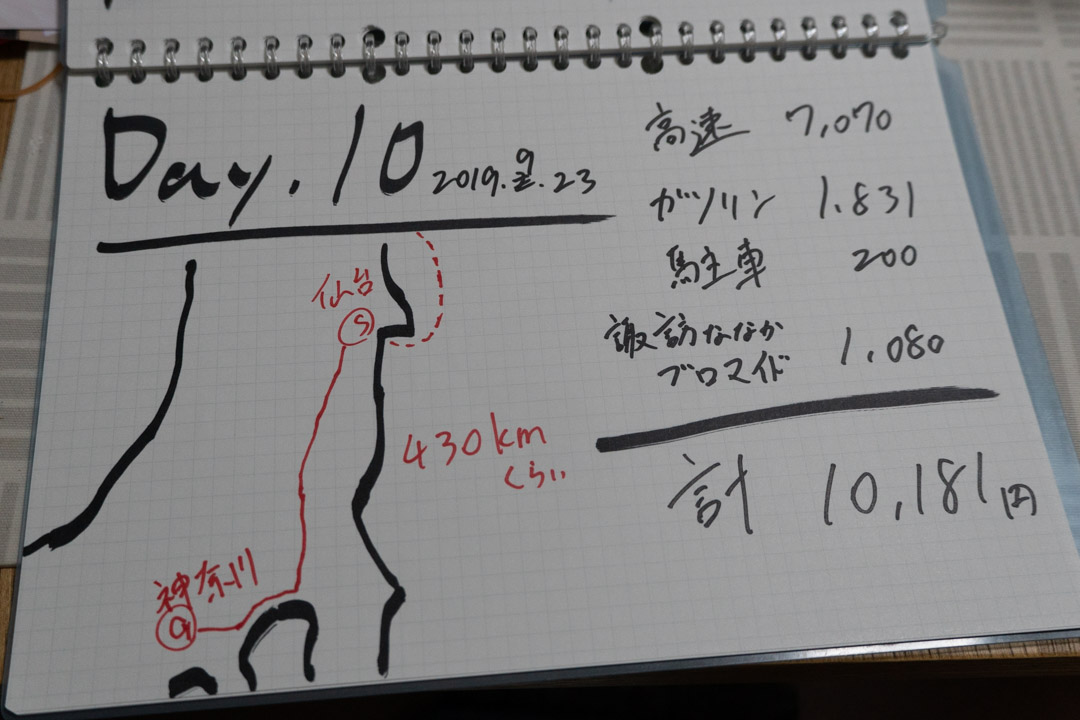 Day.10 2019.9.23
仙台
S
430km
くらい
神奈川
G
高速 7,070
ガソリン 1.831
駐車 200
諏訪ななか
ブロマイド 1.080
計 10,181円